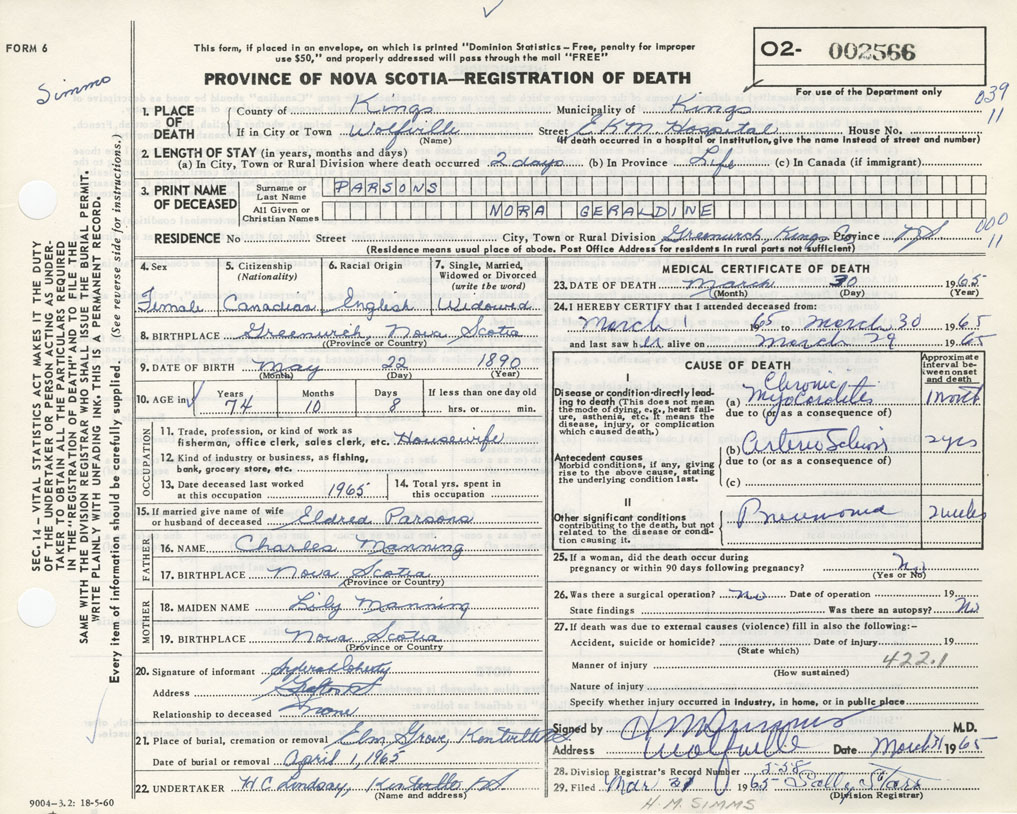 FORM 6
Simms
This form, if placed in an envelope, on which is printed "Dominion Statistics—Free, penalty for improper
use $50," and properly addressed will pass through the mail "FREE"
PROVINCE OF NOVA SCOTIA—REGISTRATION OF DEATH
O2- 002566
For use of the Department only
039
11
1. PLACE OF DEATH County of Kings Municipality of Kings
If in City or Town Wolfville Street E K M Hospital House No.
(Name) (If death occurred in a hospital or institution, give the name instead of street and number)
2. LENGTH OF STAY (in years, months and days)
(a) In City, Town or Rural Division where death occurred 2 days (b) In Province Life (c) In Canada (if immigrant)
3. PRINT NAME OF DECEASED Surname or Last Name PARSONS
All Given or Christian Names NORA GERALDINE
RESIDENCE No Street City, Town or Rural Division Greenwich Kings Co Province NS
000
11
(Residence means usual place of abode. Post Office Address for residents in rural parts not sufficient)
4. Sex Female
5. Citizenship (Nationality) Canadian
6. Racial Origin English
7. Single, Married, Widowed or Divorced (write the word) Widowed
8. BIRTHPLACE Greenwich, Nova Scotia
(Province or Country)
9. DATE OF BIRTH May 22 1890
(Month) (Day) (Year)
10. AGE in Years 74 Months 10 Days 8 If less than one day old hrs. or min.
OCCUPATION
11. Trade, profession, or kind of work as fisherman, office clerk, sales clerk, etc. Housewife
12. Kind of industry or business, as fishing, bank, grocery store, etc.
13. Date deceased last worked at this occupation 1965
14. Total yrs. spent in this occupation
15. If married give name of wife or husband of deceased Eldred Parsons
FATHER
16. NAME Charles Manning
17. BIRTHPLACE Nova Scotia
(Province or Country)
MOTHER
18. MAIDEN NAME Lily Manning
19. BIRTHPLACE Nova Scotia
(Province or Country)
20. Signature of informant
Address Grafton NS
Relationship to deceased None
21. Place of burial, cremation or removal Elm Grove, Kentville NS
Date of burial or removal April 1, 1965
22. UNDERTAKER W C Lindsay, Kentville NS
(Name and address)
9004—3.2: 18-5-60
MEDICAL CERTIFICATE OF DEATH
23. DATE OF DEATH March 30 1965
(Month) (Day) (Year)
24. I HEREBY CERTIFY that I attended deceased from:
March 1 1965 to March 30 1965
and last saw her alive on March 29 1965
CAUSE OF DEATH
Approximate interval between onset and death
I
Disease or condition directly leading to death (This does not mean the mode of dying, e.g., heart failure, asthenia, etc. It means the disease, injury, or complication which caused death.)
(a) Chronic Myocarditis 1 month
due to (or as a consequence of)
Antecedent causes
Morbid conditions, if any, giving rise to the above cause, stating the underlying condition last.
(b) Arterio Sclerosis 2 yrs
due to (or as a consequence of)
(c)
II
Other significant conditions contributing to the death, but not related to the disease or condition causing it.
Pneumonia 2 weeks
25. If a woman, did the death occur during pregnancy or within 90 days following pregnancy? No
(Yes or No)
26. Was there a surgical operation? No Date of operation 19
State findings Was there an autopsy? No
27. If death was due to external causes (violence) fill in also the following:—
Accident, suicide or homicide? Date of injury 19
(State which)
Manner of injury 422.1
(How sustained)
Nature of injury
Specify whether injury occurred in industry, in home, or in public place
Signed by M.D.
Address Wolfville Date March 31 1965
28. Division Registrar's Record Number 558
29. Filed Mar 31 1965 Sally Starr
(Division Registrar)
H. M. SIMMS
SEC. 14 — VITAL STATISTICS ACT MAKES IT THE DUTY
OF THE UNDERTAKER OR PERSON ACTING AS UNDER-
TAKER TO OBTAIN ALL THE PARTICULARS REQUIRED
IN THE "REGISTRATION OF DEATH" AND TO FILE THE
SAME WITH THE DIVISION REGISTRAR WHO SHALL ISSUE THE BURIAL PERMIT.
WRITE PLAINLY WITH UNFADING INK. THIS IS A PERMANENT RECORD.
Every item of information should be carefully supplied. (See reverse side for instructions.)